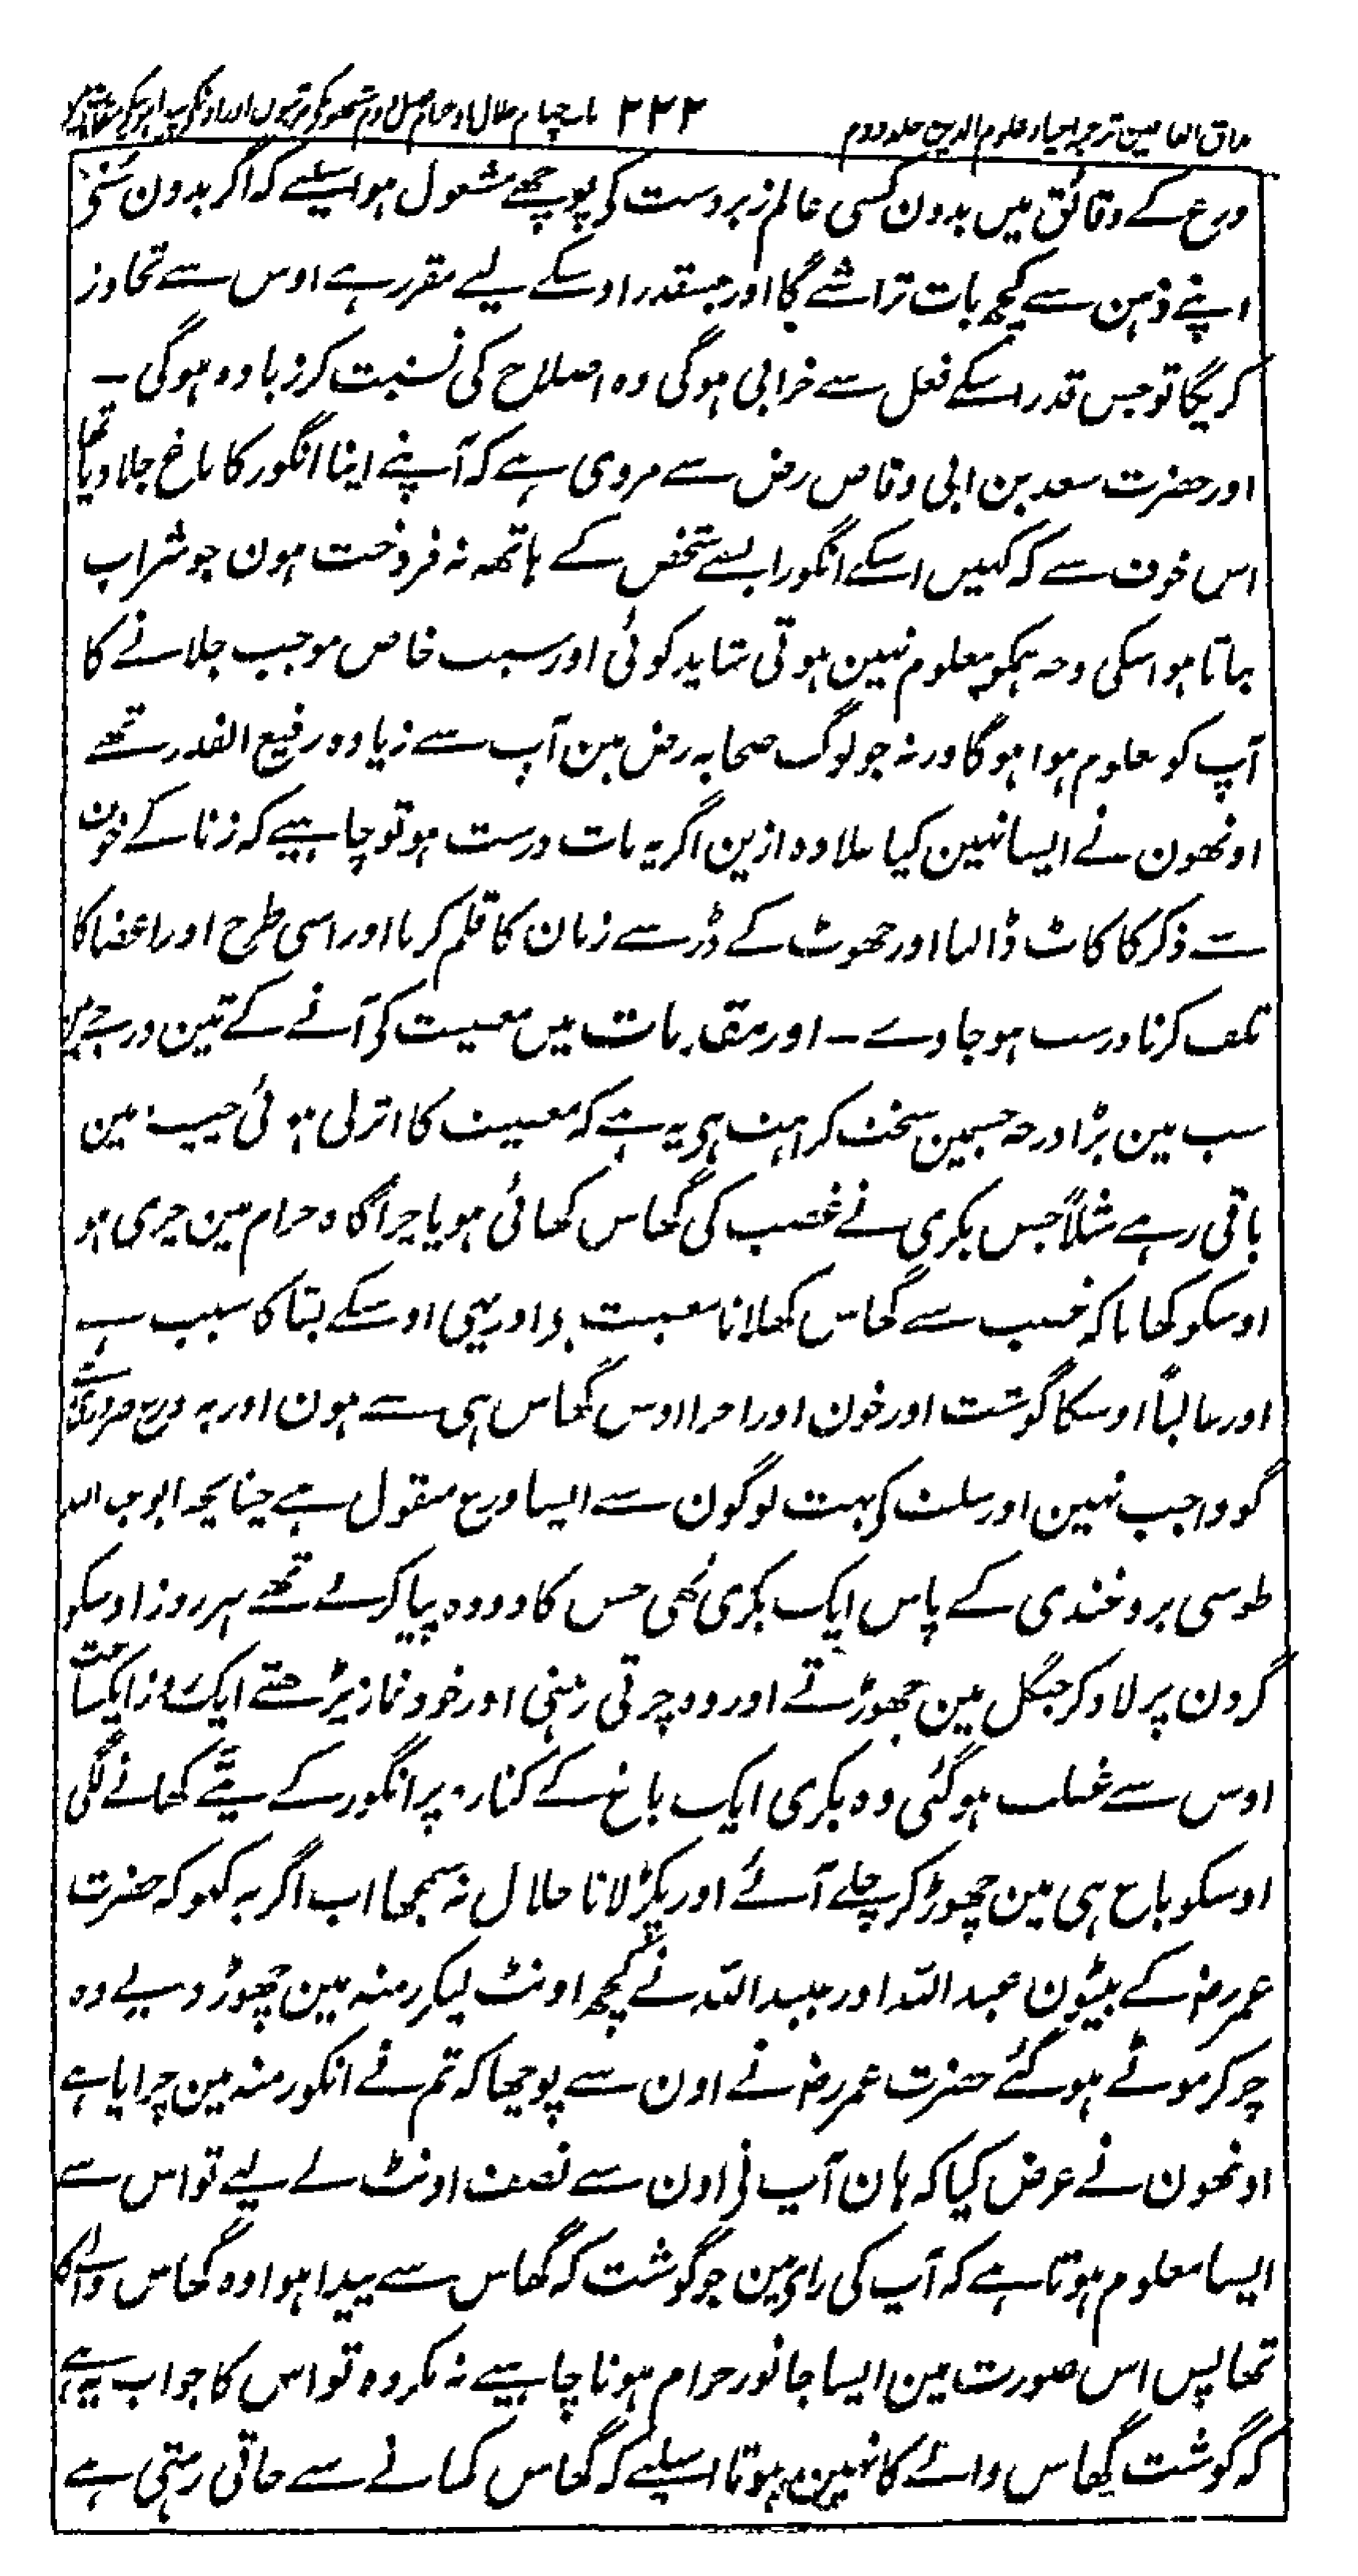 مذاق العارفین ترجمہ احیاء علوم الدین جلد دوم ۲۲۲ باب چہارم حلال و حرام فصل دوم
ورع کے دقائق میں بدون کسی عالم زبردست کی پوچھے مشغول ہو اسیلیے کہ اگر بدون سُنی
اپنے ذہن سے کچھ بات تراشے گا اور جسقدر اوسکے لیے مقرر ہے اوس سے تجاوز
کریگا تو جس قدر اسکے فعل سے خرابی ہوگی وہ اصلاح کی نسبت کر زیادہ ہوگی ۔
اور حضرت سعد بن ابی وقاص رض سے مروی ہے کہ آپنے اپنا انگور کا باغ جلا دیا تھا
اس خوف سے کہ کہیں اسکے انگور ایسے شخص کے ہاتھہ نہ فروخت ہون جو شراب
بناتا ہو اسکی وجہ ہمکو معلوم نہین ہوتی شاید کوئی اور سبب خاص موجب جلانے کا
آپ کو معلوم ہوا ہوگا ورنہ جو لوگ صحابہ رض مین آپ سے زیادہ رفیع القدر تھے
اونھون نے ایسا نہین کیا علاوہ ازین اگر یہ بات درست ہو تو چاہیے کہ زنا کے خوف
سے ذکر کا کاٹ ڈالنا اور جھوٹ کے ڈر سے زبان کا قلم کرنا اور اسی طرح اور اعضا کا
تلف کرنا درست ہو جاوے ۔ اور مقدمات میں معصیت کی آنے کے تین درجے ہین
سب مین بڑا درجہ جسمین سخت کراہت ہی یہ ہے کہ معصیت کا اثر لی ہوئی چیز مین
باقی رہے مثلاً جس بکری نے غصب کی گھاس کھائی ہو یا چراگاہ حرام مین چری ہو
اوسکو کھانا کہ غصب سے گھاس کھلانا معصیت ہر اور یہی اوسکے بقا کا سبب ہے
اور غالباً اوسکا گوشت اور خون اور اجزا اوس گھاس ہی سے ہون اور یہ ورع ضروری ہے
گو واجب نہین اور سلف کی بہت لوگون سے ایسا ورع منقول ہے چنانچہ ابو عبد اللہ
طوسی بروغندی کے پاس ایک بکری تھی جس کا دودہ پیا کرتے تھے ہر روز اوسکو
گردن پر لاد کر جنگل مین چھوڑتے اور وہ چرتی رہتی اور خود نماز پڑھتے ایک روز ایک ساعت
اوس سے غفلت ہوگئی وہ بکری ایک باغ کے کنارہ پر انگور کے پتے کھانے لگی
اوسکو باغ ہی مین چھوڑ کر چلے آئے اور پکڑ لانا حلال نہ سمجھا اب اگر یہ کہو کہ حضرت
عمر رض کے بیٹون عبد اللہ اور عبید اللہ نے کچھ اونٹ لیکر رمنہ مین چھوڑ دیے وہ
چر کر موٹے ہو گئے حضرت عمر رض نے اون سے پوچھا کہ تم نے انکو رمنہ مین چرایا ہے
اونھون نے عرض کیا کہ ہان آپ نے اون سے نصف اونٹ لے لیے تو اس سے
ایسا معلوم ہوتا ہے کہ آپ کی رای مین جو گوشت کہ گھاس سے پیدا ہوا وہ گھاس والے کا
تھا پس اس صورت مین ایسا جانور حرام ہونا چاہیے نہ مکروہ تو اس کا جواب یہ ہے
کہ گوشت گھاس والے کا نہین ہوتا اسیلیے کہ گھاس کھانے سے جاتی رہتی ہے